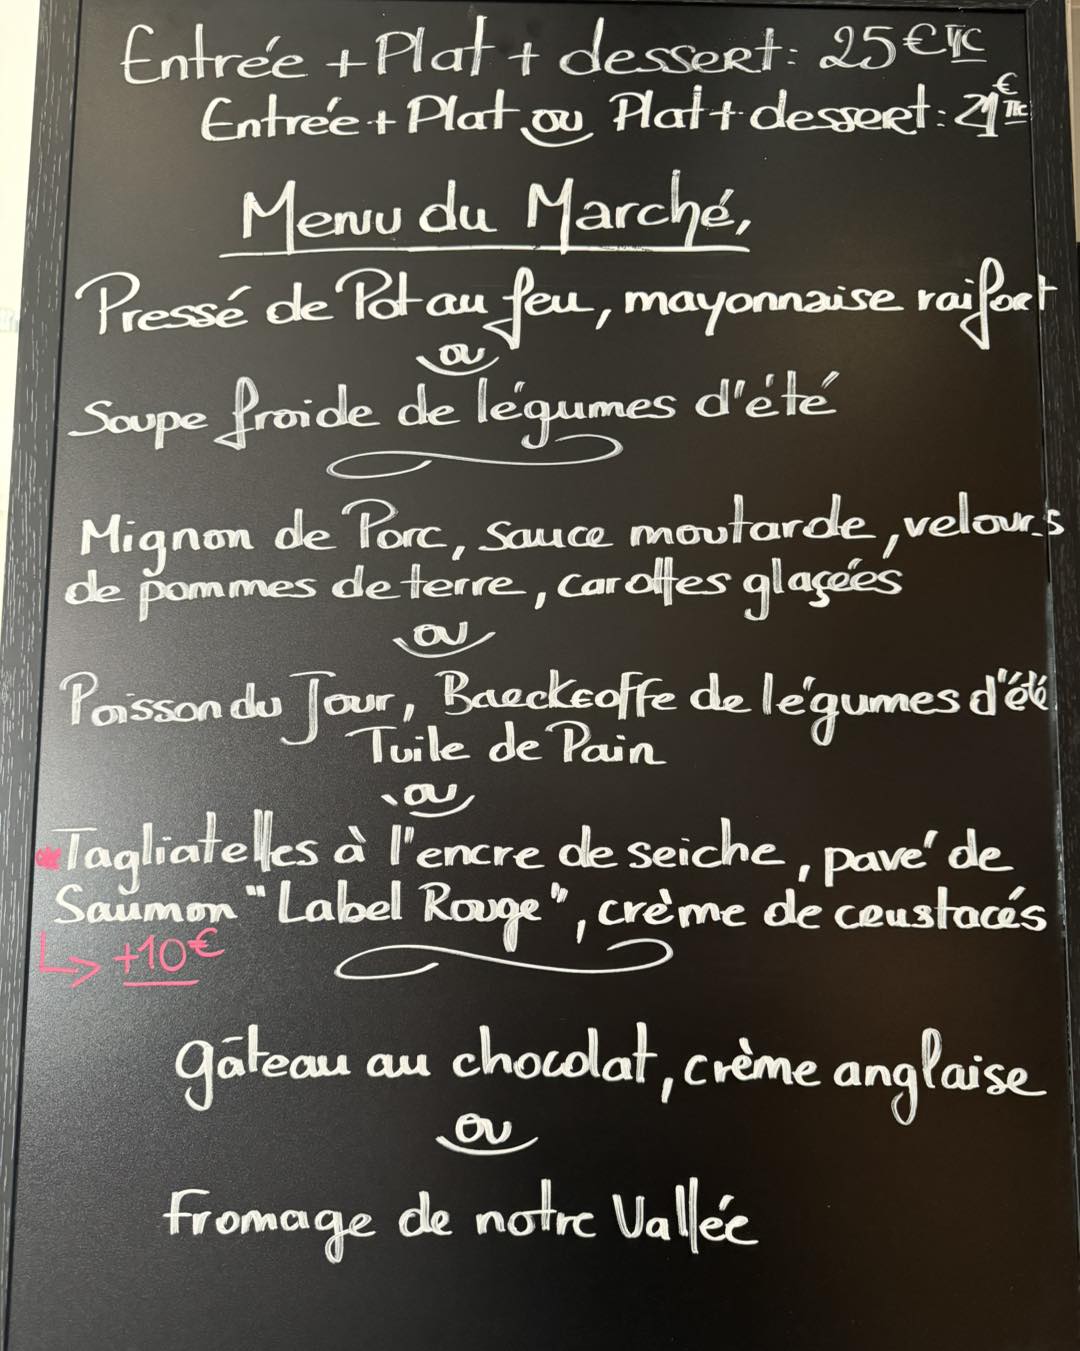 Entrée + Plat + dessert: 25€ TTC
Entrée + Plat ou Plat + dessert: 21€ TTC
Menu du Marché,
Pressé de Pot au feu, mayonnaise raifort
ou
Soupe froide de légumes d'été
Mignon de Porc, sauce moutarde, velours
de pommes de terre, carottes glaçées
ou
Poisson du Jour, Baeckeoffe de légumes d'été
Tuile de Pain
ou
Tagliatelles à l'encre de seiche, pavé de
Saumon "Label Rouge", crème de crustacés
↳ +10€
gâteau au chocolat, crème anglaise
ou
Fromage de notre Vallée